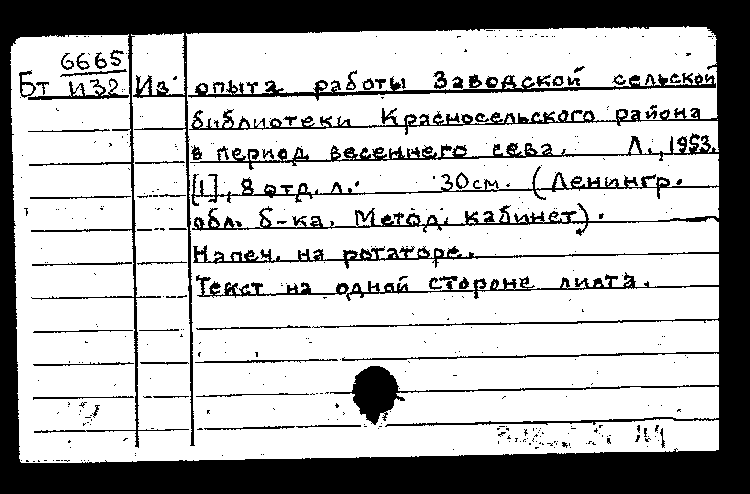 6665
Бт И32 Из опыта работы Заводской сельской
библиотеки Красносельского района
в период весеннего сева. Л., 1953.
[1], 8 отд. л. 30см. (Ленингр.
обл. б-ка. Метод. кабинет).
Напеч. на ротаторе.
Текст на одной стороне листа.